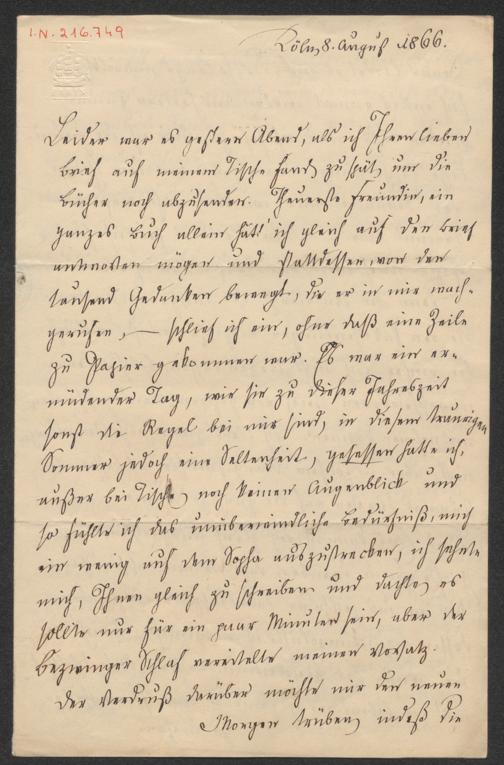 I.N. 216.749
Köln, 8. August 1866.
Leider war es gestern Abend, als ich Ihren lieben
Brief auf meinem Tische fand, zu spät, um die
Bücher noch abzusenden. Theuerste Freundin, ein
ganzes Buch allein hätt' ich gleich auf den Brief
antworten mögen und stattdessen, von den
tausend Gedanken bewegt, die er in mir wach-
gerufen, — schlief ich ein, ohne daß eine Zeile
zu Papier gekommen war. Es war ein er-
müdender Tag, wie sie zu dieser Jahreszeit
sonst die Regel bei mir sind, in diesem traurigen
Sommer jedoch eine Seltenheit, gesessen hatte ich,
außer bei Tische, noch keinen Augenblick und
so fühlte ich das unüberwindliche Bedürfniß, mich
ein wenig auf dem Sopha auszustrecken, ich sehnte
mich, Ihnen gleich zu schreiben und dachte, es
sollte nur für ein paar Minuten sein, aber der
Bezwinger Schlaf vereitelte meinen Vorsatz.
Der Verdruß darüber möchte mir den neuen
Morgen trüben, indeß die